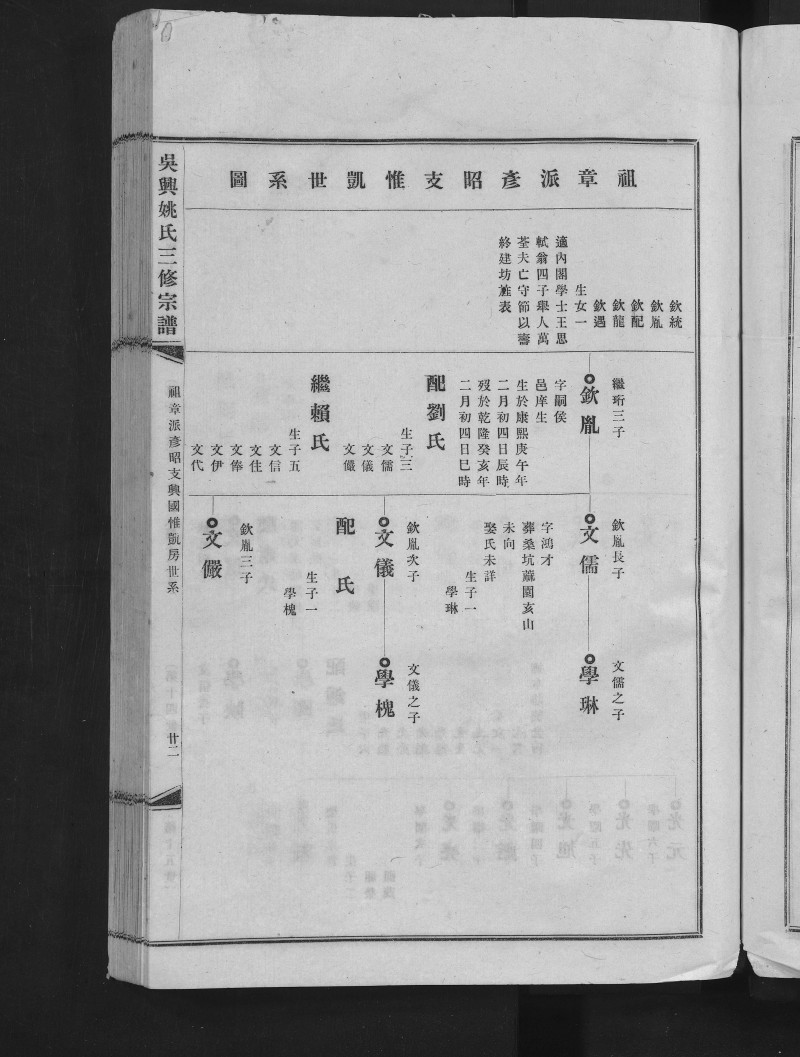 祖章派彥昭支惟凱世系圖
欽統
欽胤
欽配
欽龍
欽遇
生女一
適內閣學士王思
軾翁四子舉人萬
荃夫亡守節以壽
終建坊旌表
繼珩三子
欽胤
字嗣侯
邑庠生
生於康熙庚午年
二月初四日辰時
歿於乾隆癸亥年
二月初四日巳時
配劉氏
生子三
文儒
文儀
文儼
繼賴氏
生子五
文信
文住
文俸
文伊
文代
欽胤長子
文儒
字鴻才
葬桑坑蔴園亥山
未向
娶氏未詳
生子一
學琳
欽胤次子
文儀
配 氏
生子一
學槐
欽胤三子
文儼
文儒之子
學琳
文儀之子
學槐
吳興姚氏三修宗譜
祖章派彥昭支興國惟凱房世系
廿二